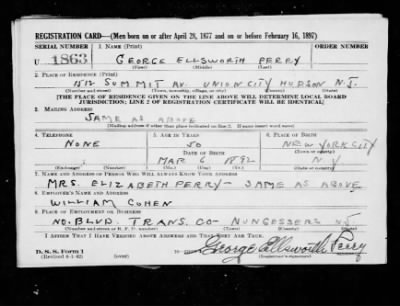 REGISTRATION CARD—(Men born on or after April 28, 1877 and on or before February 16, 1897)
SERIAL NUMBER 1. NAME (Print) ORDER NUMBER
U 1863 GEORGE ELLSWORTH PERRY
(First) (Middle) (Last)
2. PLACE OF RESIDENCE (Print)
SUMMIT AV. UNION CITY HUDSON N.J.
(Number and street) (Town, township, village, or city) (County) (State)
[THE PLACE OF RESIDENCE GIVEN ON THE LINE ABOVE WILL DETERMINE LOCAL BOARD
JURISDICTION; LINE 2 OF REGISTRATION CERTIFICATE WILL BE IDENTICAL]
3. MAILING ADDRESS
SAME AS ABOVE
[Mailing address if other than place indicated on line 2. If same insert word same]
4. TELEPHONE 5. AGE IN YEARS 6. PLACE OF BIRTH
NONE 50 NEW YORK CITY
DATE OF BIRTH (Town or county)
MAR 6 1892 N Y
(Exchange) (Number) (Mo.) (Day) (Yr.) (State or country)
7. NAME AND ADDRESS OF PERSON WHO WILL ALWAYS KNOW YOUR ADDRESS
MRS. ELIZABETH PERRY — SAME AS ABOVE
8. EMPLOYER'S NAME AND ADDRESS
WILLIAM COHEN
9. PLACE OF EMPLOYMENT OR BUSINESS
NO. BLVD. TRANS. CO — NUNGESSERS N.J.
(Number and street or R. F. D. number) (Town) (County) (State)
I AFFIRM THAT I HAVE VERIFIED ABOVE ANSWERS AND THAT THEY ARE TRUE.
D. S. S. Form 1
(Revised 4-1-42) George Ellsworth Perry
(Registrant's signature)